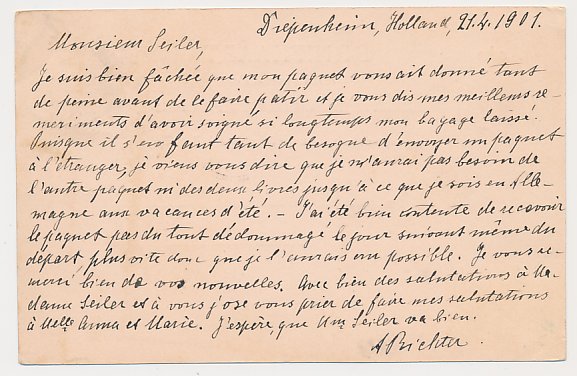 Diepenheim, Holland, 21.4.1901.
Monsieur Seiler,
Je suis bien fâchée que mon paquet vous ait donné tant
de peine avant de le faire partir et je vous dis mes meilleurs re-
merciments d'avoir soigné si longtemps mon bagage laissé.
Puisque il faut tant de besogne d'envoyer un paquet
à l'étranger, je viens vous dire que je n'aurai pas besoin de
l'autre paquet ni des deux livres jusqu'à ce que je sois en Alle-
magne aux vacances d'été. – J'ai été bien contente de recevoir
le paquet pas du tout dédommagé le jour suivant même du
départ plus vite donc que je l'aurais cru possible. Je vous re-
mercie bien de vos nouvelles. Avec bien des salutations à Ma-
dame Seiler et à vous j'ose vous prier de faire mes salutations
à Melle Anna et Marie. J'espère, que Mme Seiler va bien.
A Richter.